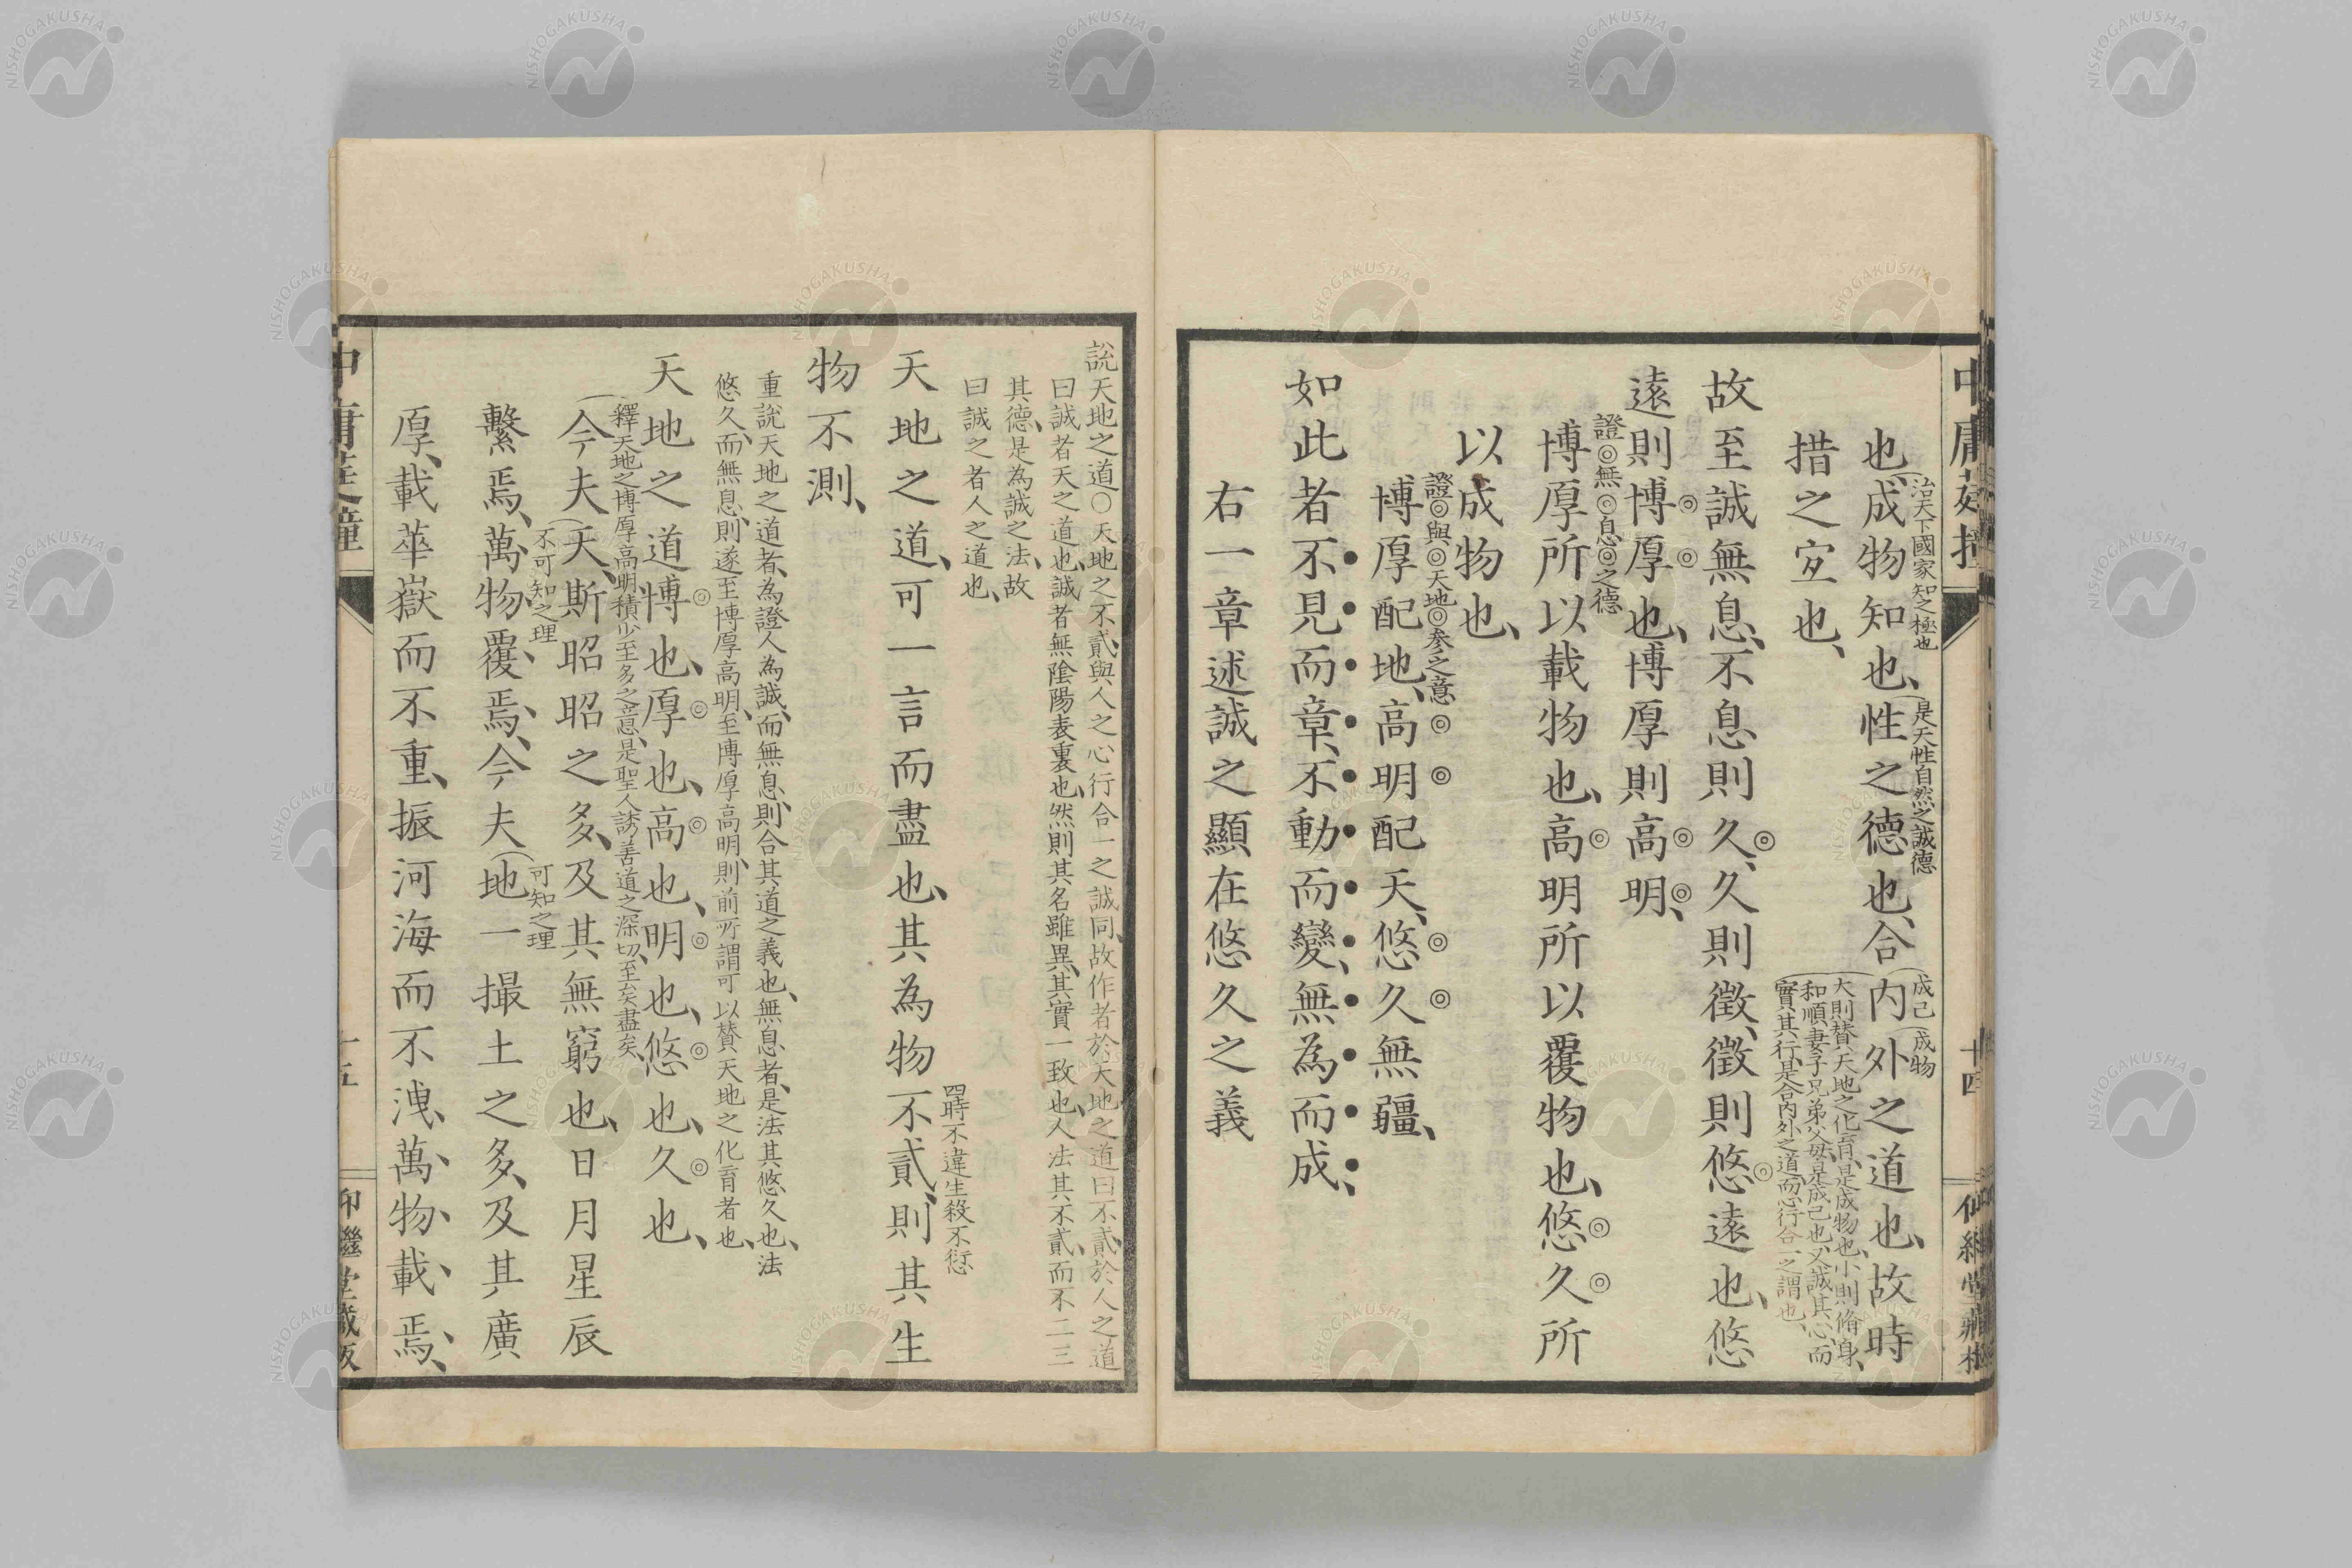 也、成物知也、性之德也、合内外之道也、故時
治天下國家知之極也
是天性自然之誠德
成己
成物
措之宜也、
大則賛天地之化育、是成物也、小則脩身、
和順妻子兄弟父母、是成己也、又誠其心、而
實其行、是合内外之道、而心行合一之謂也、
故至誠無息、不息則久、久則徵、徵則悠遠也、悠
遠則博厚也、博厚則高明、
證◎無◎息◎之德
博厚所以載物也、高明所以覆物也、悠久所
以成物也、
證◎與◎天地◎参之意
博厚配地、高明配天、悠久無疆、
如此者不見而章、不動而變、無為而成、
右一章述誠之顯在悠久之義
十四
說天地之道○天地之不貳、與人之心行合一之誠同、故作者於天地之道曰不貳、於人之道
曰誠者天之道也、誠者無陰陽表裏也、然則其名雖異、其實一致也、人法其不貳、而不二三
其德、是為誠之法、故
曰誠之者人之道也、
天地之道、可一言而盡也、其為物不貳、則其生
四時不違生殺不愆
物不測、
重說天地之道者、為證人為誠、而無息、則合其道之義也、無息者、是法其悠久也、法
悠久、而無息、則遂至博厚高明、至博厚高明、則前所謂可以賛天地之化育者也、
天地之道博也、厚也、高也、明也、悠也、久也、
釋天地之博厚高明積少至多之意、是聖人誘善道之深切、至矣盡矣、
今夫天、斯昭昭之多、及其無窮也、日月星辰
不可知之理
繫焉、萬物覆焉、今夫地一撮土之多、及其廣
可知之理
厚、載華嶽而不重、振河海而不洩、萬物載焉、
十五
NISHOGAKUSHA